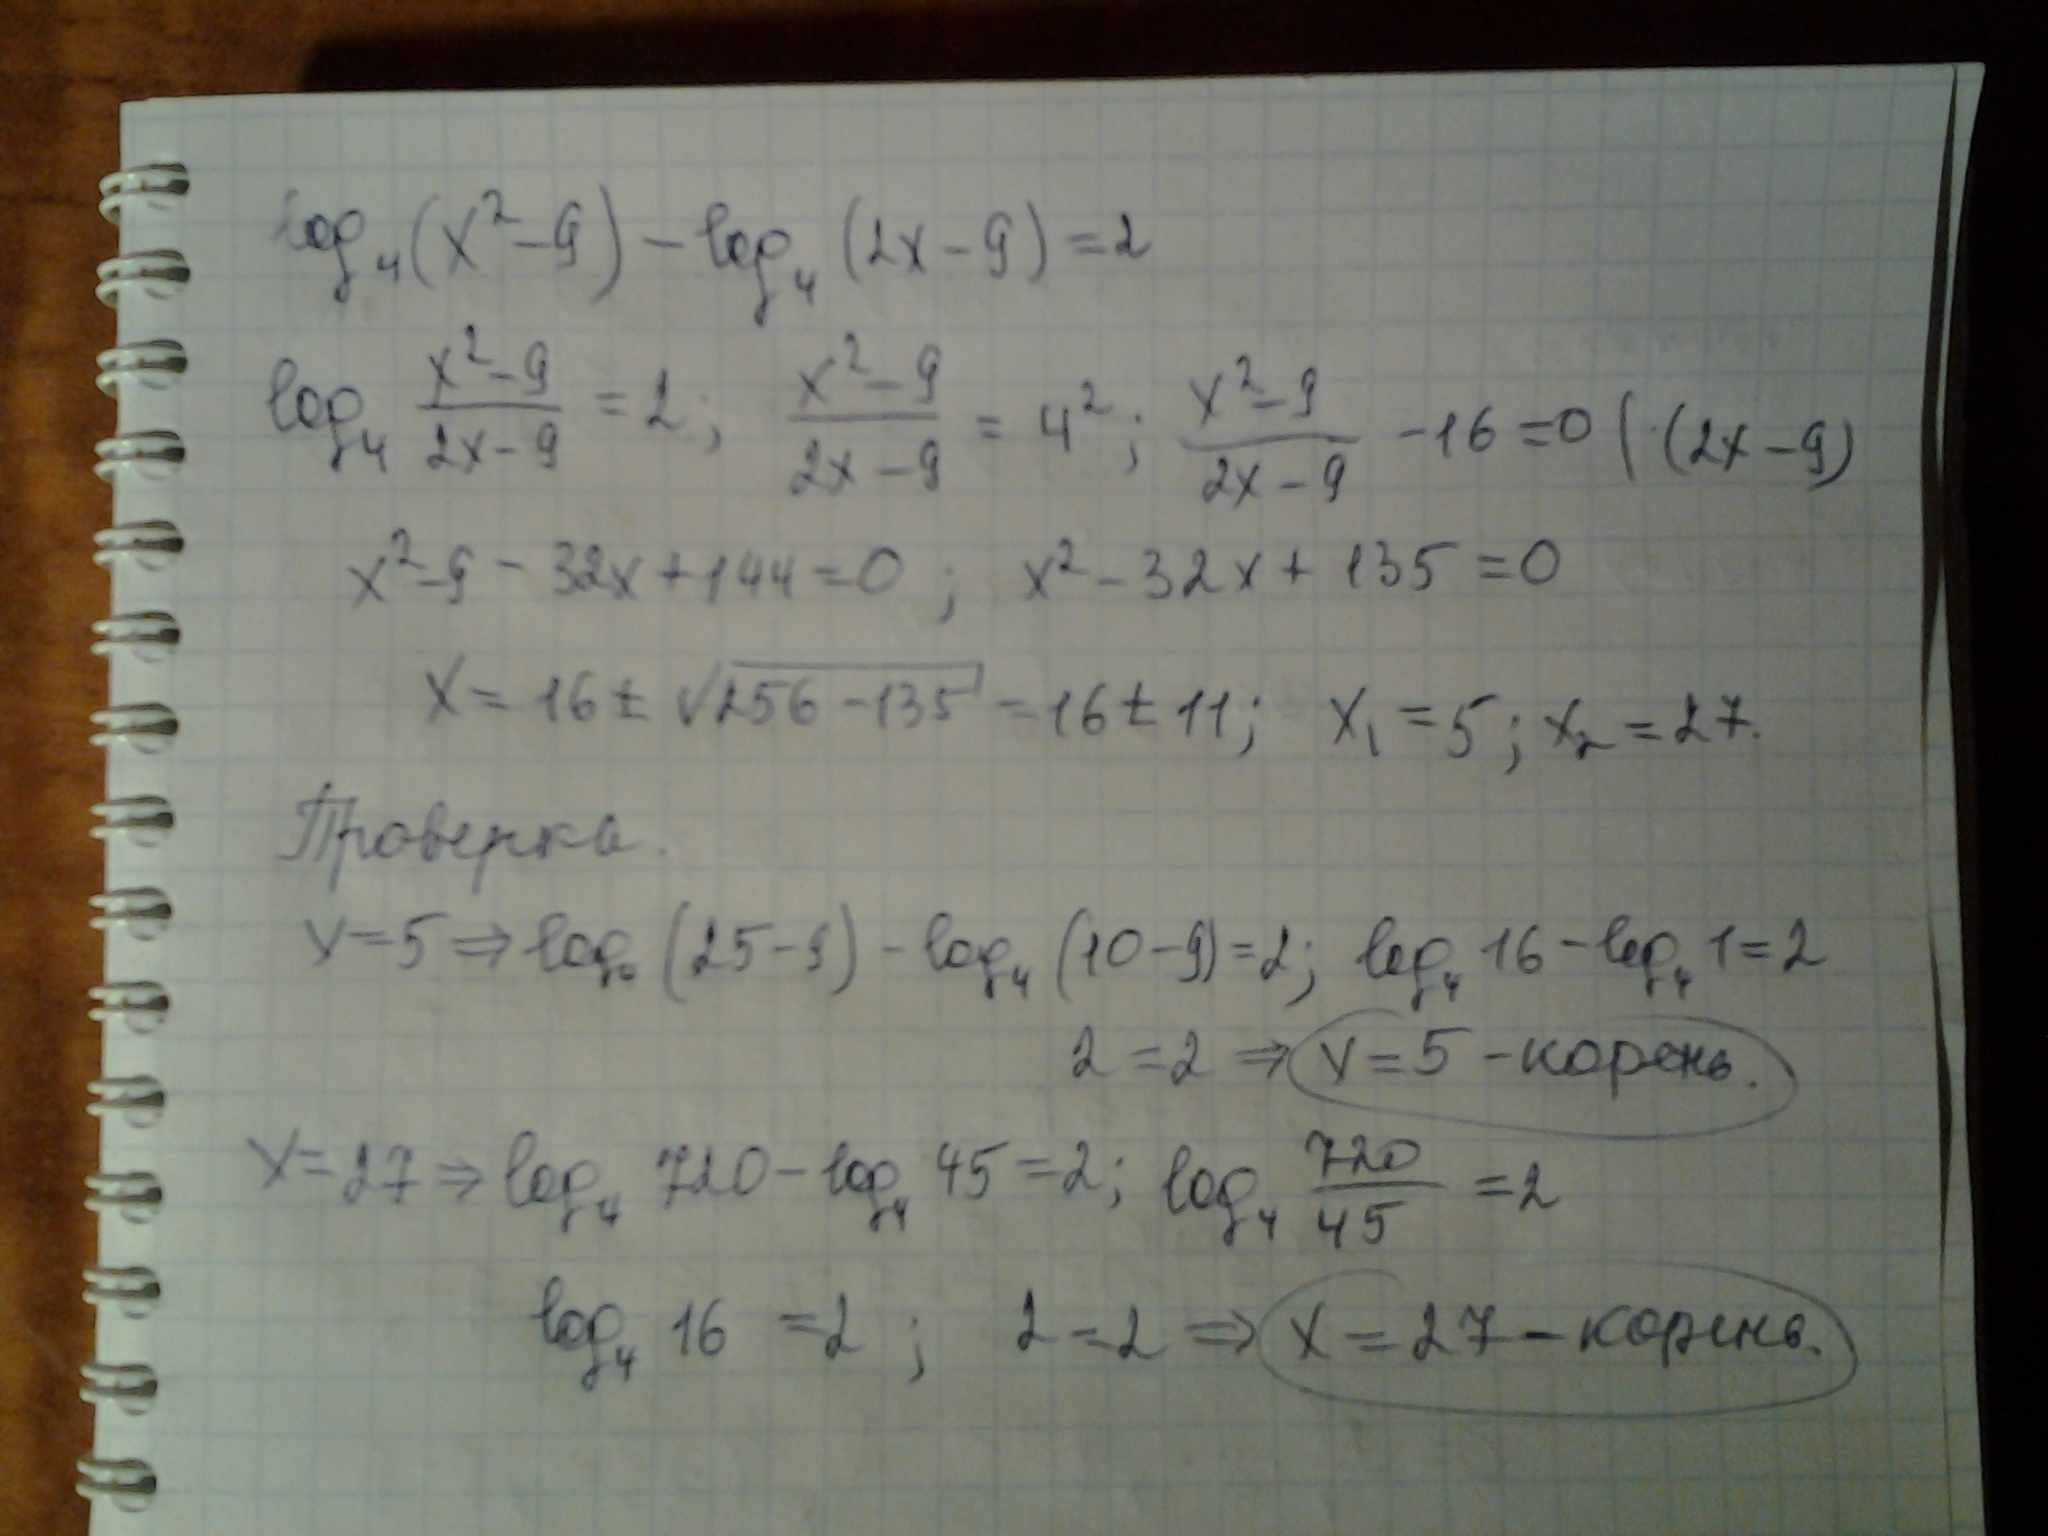 log₄(x²-9) - log₄(2x-9) = 2
log₄ (x²-9)/(2x-9) = 2; (x²-9)/(2x-9) = 4²; (x²-9)/(2x-9) - 16 = 0 | ·(2x-9)
x²-9 - 32x + 144 = 0; x² - 32x + 135 = 0
x = 16 ± √(256-135) = 16 ± 11; x₁ = 5; x₂ = 27.
Проверка.
x=5 ⇒ log₄(25-9) - log₄(10-9) = 2; log₄ 16 - log₄ 1 = 2
2 = 2 ⇒ x = 5 - корень.
x=27 ⇒ log₄ 720 - log₄ 45 = 2; log₄ 720/45 = 2
log₄ 16 = 2; 2 = 2 ⇒ x = 27 - корень.